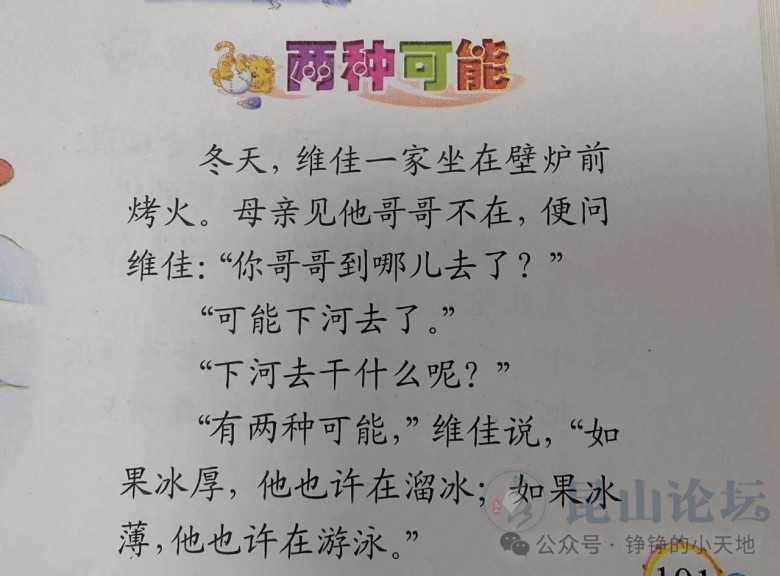 两种可能
冬天，维佳一家坐在壁炉前
烤火。母亲见他哥哥不在，便问
维佳：“你哥哥到哪儿去了？”
“可能下河去了。”
“下河去干什么呢？”
“有两种可能，”维佳说，“如
果冰厚，他也许在溜冰；如果冰
薄，他也许在游泳。”
昆山论坛
公众号·铮铮的小天地
101